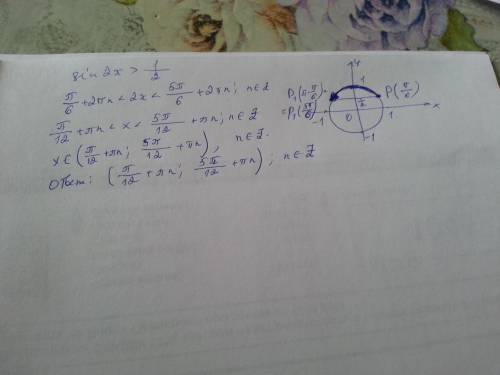 sin 2x > 1/2
π/6 + 2πn < 2x < 5π/6 + 2πn; n∈Z
π/12 + πn < x < 5π/12 + πn; n∈Z
x∈(π/12 + πn; 5π/12 + πn), n∈Z.
Ответ: (π/12 + πn; 5π/12 + πn); n∈Z
y
1
P₁(π-π/6)=
=P₁(5π/6)
P(π/6)
1/2
-1
0
1
x
-1